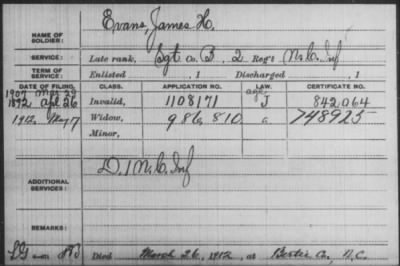 Evans, James H.
NAME OF SOLDIER:
SERVICE: Late rank, Sgt Co. B, 2 Reg't N.C. Inf
TERM OF SERVICE: Enlisted , 1 Discharged , 1
DATE OF FILING. CLASS. APPLICATION NO. LAW. CERTIFICATE NO.
1907 Mar 29 age
1892 Apl 26 Invalid, 1108171 J 842,064
1912, May 17 Widow, 986,810 748925
Minor,
D, 1 N.C. Inf
ADDITIONAL SERVICES:
REMARKS:
Died March 26, 1912, at Bertie Co., N.C.